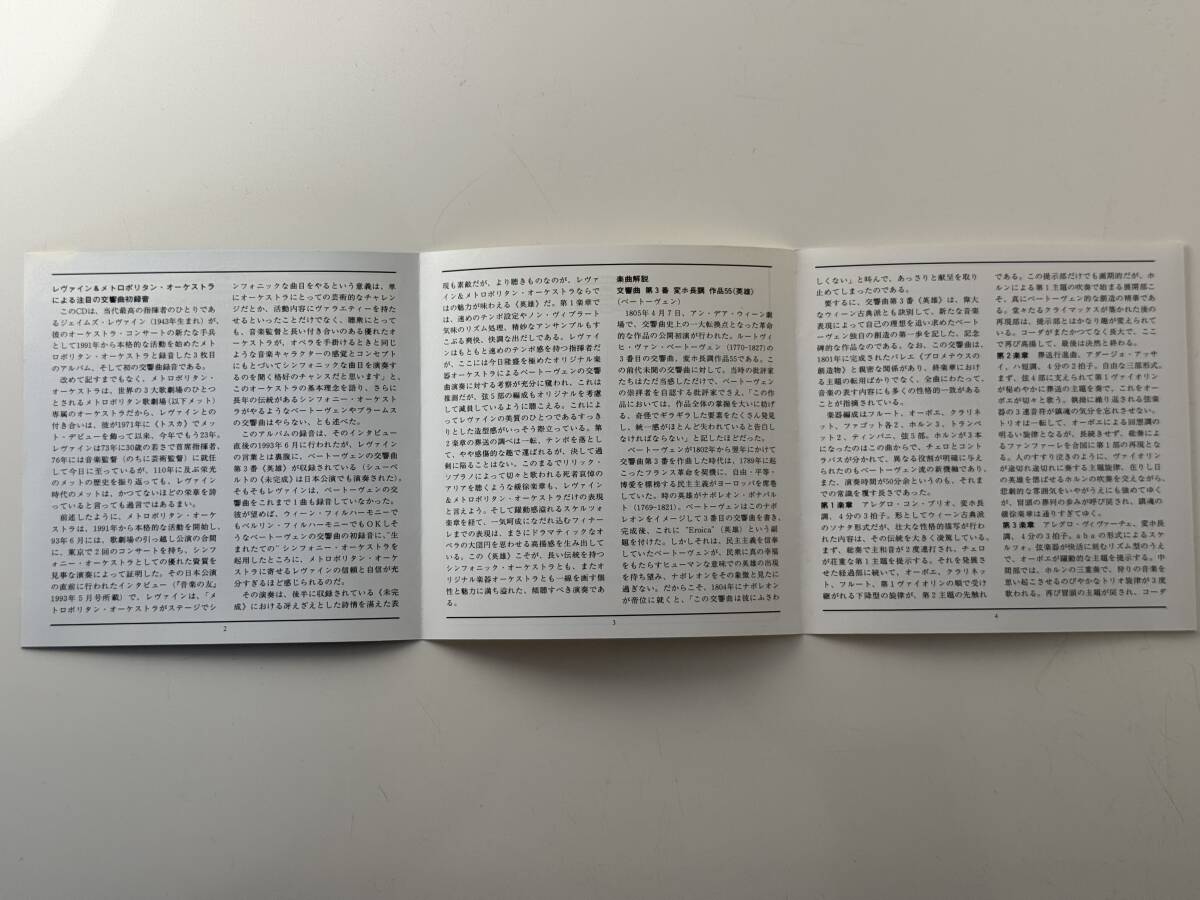 レヴァイン＆メトロポリタン・オーケストラ
による注目の交響曲初録音
このCDは、当代最高の指揮者のひとりであ
るジェイムズ・レヴァイン (1943年生まれ) が、
彼のオーケストラ・コンサートの新たな手兵
として1991年から本格的な活動を始めたメト
ロポリタン・オーケストラと録音した3枚目
のアルバム、そして初の交響曲録音である。
改めて記すまでもなく、メトロポリタン・
オーケストラは、世界の3大歌劇場のひとつ
とされるメトロポリタン歌劇場(以下メット)
専属のオーケストラだから、レヴァインとの
付き合いは、彼が1971年に《トスカ》でメッ
ト・デビューを飾って以来、今年でもう23年。
レヴァインは73年に30歳の若さで首席指揮者、
76年には音楽監督 (のちに芸術監督) に就任
して今日に至っているが、110年に及ぶ栄光
のメットの歴史を振り返っても、レヴァイン
時代のメットは、かつてないほどの栄華を誇
っていると言っても過言ではあるまい。
前述したように、メトロポリタン・オーケ
ストラは、1991年から本格的な活動を開始し、
93年6月には、歌劇場の引っ越し公演の合間
に、東京で2回のコンサートを持ち、シンフ
ォニー・オーケストラとしての優れた資質を
見事な演奏によって証明した。その日本公演
の直前に行われたインタビュー (『音楽の友』
1993年5月号所載) で、レヴァインは、「メ
トロポリタン・オーケストラがステージでシ
ンフォニックな曲目をやるという意義は、単
にオーケストラにとっての芸術的なチャレン
ジだとか、活動内容にヴァラエティーを持た
せるといったことだけでなく、聴衆にとって
も、音楽監督と長い付き合いのある優れたオ
ーケストラが、オペラを手掛けるときと同じ
ような音楽キャラクターの感覚とコンセプト
にもとづいてシンフォニックな曲目を演奏す
るのを聞く格好のチャンスだと思います」と、
このオーケストラの基本理念を語り、さらに
長年の伝統があるシンフォニー・オーケスト
ラがやるようなベートーヴェンやブラームス
の交響曲はやらない、とも述べた。
このアルバムの録音は、そのインタビュー
直後の1993年6月に行われたが、レヴァイン
の言葉とは裏腹に、ベートーヴェンの交響曲
第3番《英雄》が収録されている (シューベ
ルトの《未完成》は日本公演でも演奏された)。
そもそもレヴァインは、ベートーヴェンの交
響曲をこれまで1曲も録音していなかった。
彼が望めば、ウィーン・フィルハーモニーで
もベルリン・フィルハーモニーでもOKしそ
うなベートーヴェンの交響曲の初録音に、“生
まれたての”シンフォニー・オーケストラを
起用したところに、メトロポリタン・オーケ
ストラに寄せるレヴァインの信頼と自信が充
分すぎるほど感じられるのだ。
その演奏は、後半に収録されている《未完
成》における冴えざえとした詩情を湛えた表
2
現も素敵だが、より聴きものなのが、レヴァ
イン＆メトロポリタン・オーケストラならで
はの魅力が味わえる《英雄》だ。第1楽章で
は、速めのテンポ設定やノン・ヴィブラート
気味のリズム処理、精妙なアンサンブルもす
こぶる爽快、快調な出だしである。レヴァイ
ンはもともと速めのテンポ感を持つ指揮者だ
が、ここには今日隆盛を極めたオリジナル楽
器オーケストラによるベートーヴェンの交響
曲演奏に対する考察が充分に窺われ、これは
推測だが、弦5部の編成もオリジナルを考慮
して減員しているように聴こえる。これによ
ってレヴァインの美質のひとつであるすっき
りとした造型感がいっそう際立っている。第
2楽章の葬送の調べは一転、テンポを落とし
て、やや感傷的な趣で運ばれるが、決して過
剰に陥ることはない。このまるでリリック・
ソプラノによって切々と歌われる死者哀悼の
アリアを聴くような緩徐楽章も、レヴァイン
＆メトロポリタン・オーケストラだけの表現
と言えよう。そして躍動感溢れるスケルツォ
楽章を経て、一気呵成になだれ込むフィナー
レまでの表現は、まさにドラマティックなオ
ペラの大団円を思わせる高揚感を生み出して
いる。この《英雄》こそが、長い伝統を持つ
シンフォニック・オーケストラとも、またオ
リジナル楽器オーケストラとも一線を画す個
性と魅力に満ち溢れた、傾聴すべき演奏であ
る。
楽曲解説
交響曲 第3番 変ホ長調 作品55《英雄》
(ベートーヴェン)
1805年4月7日、アン・デア・ウィーン劇
場で、交響曲史上の一大転換点となった革命
的な作品の公開初演が行われた。ルートヴィ
ヒ・ヴァン・ベートーヴェン (1770-1827)の
3番目の交響曲、変ホ長調作品55である。こ
の前代未聞の交響曲に対して、当時の批評家
たちはただ当惑しただけで、ベートーヴェン
の崇拝者を自認する批評家でさえ、「この作
品においては、作品全体の掌握を大いに妨げ
る、奇怪でギラギラした要素をたくさん発見
し、統一感がほとんど失われていると告白し
なければならない」と記したほどだった。
ベートーヴェンが1802年から翌年にかけて
交響曲第3番を作曲した時代は、1789年に起
こったフランス革命を契機に、自由・平等・
博愛を標榜する民主主義がヨーロッパを席巻
していた。時の英雄がナポレオン・ボナパル
ト (1769-1821)。ベートーヴェンはこのナポ
レオンをイメージして3番目の交響曲を書き、
完成後、これに“Eroica”(英雄) という副
題を付けた。しかしそれは、民主主義を信奉
していたベートーヴェンが、民衆に真の幸福
をもたらすヒューマンな意味での英雄の出現
を待ち望み、ナポレオンをその象徴と見たに
過ぎない。だからこそ、1804年にナポレオン
が帝位に就くと、「この交響曲は彼にふさわ
3
しくない」と叫んで、あっさりと献呈を取り
止めてしまったのである。
要するに、交響曲第3番《英雄》は、偉大
なウィーン古典派とも訣別して、新たな音楽
表現によって自己の理想を追い求めたベート
ーヴェン独自の創造の第一歩を記した、記念
碑的な作品なのである。なお、この交響曲は、
1801年に完成されたバレエ《プロメテウスの
創造物》と親密な関係があり、終楽章におけ
る主題の転用ばかりでなく、全曲にわたって、
音楽の表す内容にも多くの性格的一致がある
ことが指摘されている。
楽器編成はフルート、オーボエ、クラリネ
ット、ファゴット各2、ホルン3、トランペ
ット2、ティンパニ、弦5部。ホルンが3本
になったのはこの曲からで、チェロとコント
ラバスが分かれて、異なる役割が明確に与え
られたのもベートーヴェン流の新機軸であり、
また、演奏時間が50分余というのも、それま
での常識を覆す長さであった。
第1楽章　アレグロ・コン・ブリオ、変ホ長
調、4分の3拍子。形としてウィーン古典派
のソナタ形式だが、壮大な性格の描写が行わ
れた内容は、その伝統を大きく凌駕している。
まず、総奏で主和音が2度連打され、チェロ
が荘重な第1主題を提示する。それを発展さ
せた経過部に続いて、オーボエ、クラリネッ
ト、フルート、第1ヴァイオリンの順で受け
継がれる下降型の旋律が、第2主題の先触れ
である。この提示部だけでも画期的だが、ホ
ルンによる第1主題の吹奏で始まる展開部こ
そ、真にベートーヴェン的な創造の精華であ
る。堂々たるクライマックスが築かれた後の
再現部は、提示部とはかなり趣が変えられて
いる。コーダがまたかつてなく長大で、ここ
で再び高揚して、最後は決然と終わる。
第2楽章　葬送行進曲、アダージョ・アッサ
イ、ハ短調、4分の2拍子。自由な三部形式。
まず、弦4部に支えられて第1ヴァイオリン
が秘めやかに葬送の主題を奏で、これをオー
ボエが切々と歌う。執拗に繰り返される弦楽
器の3連音符が鎮魂の気分を忘れさせない。
トリオは一転して、オーボエによる回想調の
明るい旋律となるが、長続きせず、総奏によ
るファンファーレを合図に第1部の再現とな
る。人のすすり泣きのように、ヴァイオリン
が途切れ途切れに奏する主題旋律、在りし日
の英雄を偲ばせるホルンの吹奏を交えながら、
悲劇的な雰囲気をいやがうえにも強めてゆく
が、冒頭の葬列の歩みが呼び戻され、鎮魂の
緩徐楽章は通りすぎてゆく。
第3楽章　アレグロ・ヴィヴァーチェ、変ホ長
調、4分の3拍子。aba の形式によるスケ
ルツォ。弦楽器が快活に刻むリズム型のうえ
で、オーボエが躍動的な主題を提示する。中
間部では、ホルンの三重奏で、狩りの音楽を
思い起こさせるのびやかなトリオ旋律が3度
歌われる。再び冒頭の主題が戻され、コーダ
4